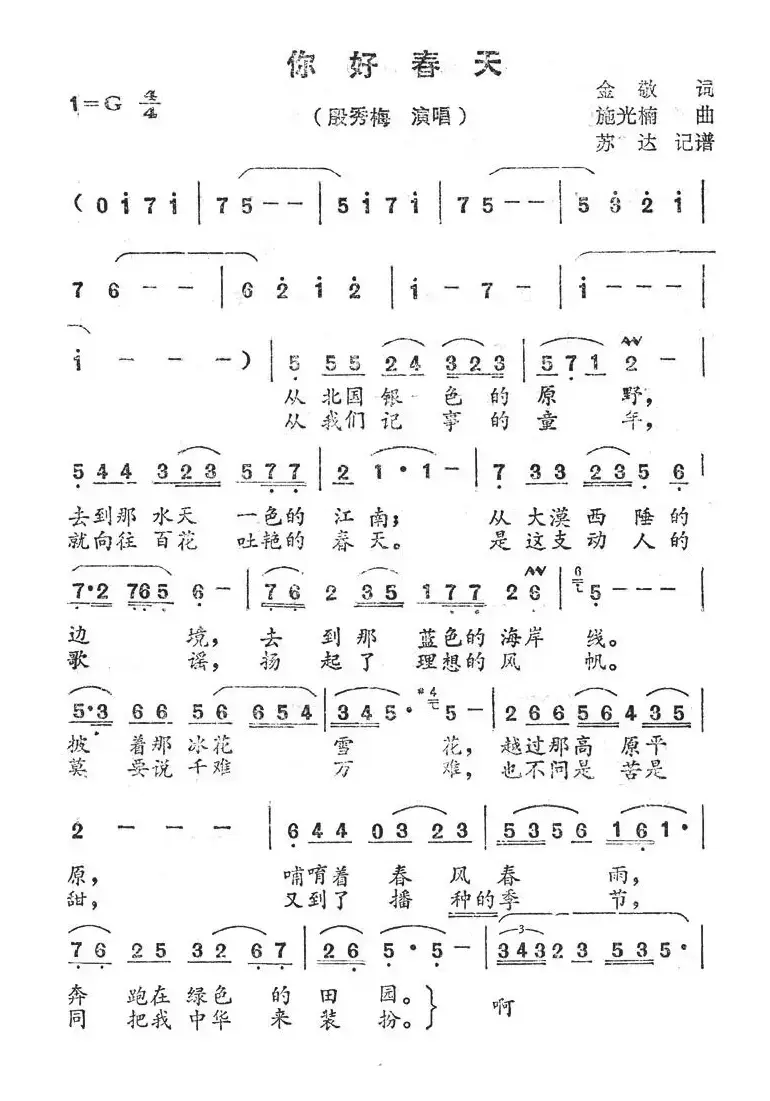 你好春天
1=G 4/4
（殷秀梅 演唱）
金敬 词
施光楠 曲
苏达 记谱
( 0 i 7 i | 7 5 - - | 5 i 7 i | 7 5 - - | 5 3 2 i |
7 6 - - | 6 2 i 2 | i - 7 - | i - - - |
i - - - ) | 5 5 5 2 4 3 2 3 | 5 7 1 2 - |
从北国银色的原野，
从我们记事的童年，
5 4 4 3 2 3 5 7 7 | 2 1 · 1 - | 7 3 3 2 3 5 6 |
去到那水天一色的江南；从大漠西陲的
就向往百花吐艳的春天。是这支动人的
7·2 7 6 5 6 - | 7 6 2 3 5 1 7 7 2 6 | 6 5 - |
边境，去到那蓝色的海岸线。
歌谣，扬起了理想的风帆。
5·3 6 6 5 6 6 5 4 | 3 4 5 · #4 5 - | 2 6 6 5 6 4 3 5 |
披着那冰花雪花，越过那高原平
莫要说千难万难，也不问是苦是
2 - - - | 6 4 4 0 3 2 3 | 5 3 5 6 1 6 1 · |
原，哺唷着春风春雨，
甜，又到了播种的季节，
7 6 2 5 3 2 6 7 | 2 6 5 · 5 - | 3 3 4 3 2 3 5 3 5 ·
奔跑在绿色的田园。} 啊
同把我中华来装扮。